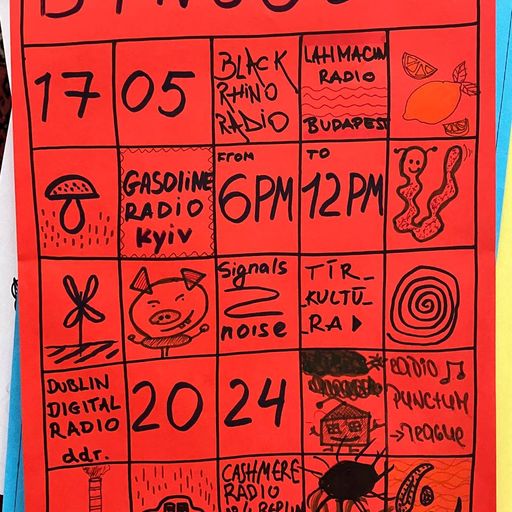 17
05
BLACK
RHINO
RADIO
LAHMACUN
RADIO
BUDAPEST
GASOLINE
RADIO
Kyiv
FROM
6PM
TO
12PM
Signals
noise
TĪR_
_KULTŪ_
_RA
DUBLIN
DIGITAL
RADIO
ddr.
20
24
RADIO
PUNCTUM
CASHMERE
RADIO
BERLIN